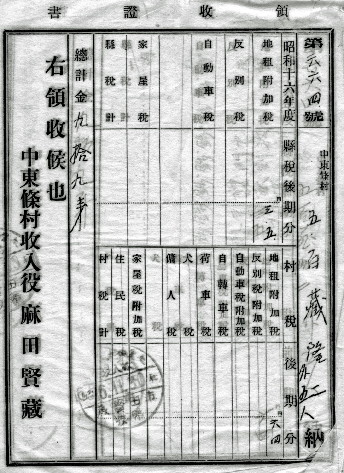 領收證書
第六六四號
中東條村
五百藏
外五人 納
昭和十六年度
縣稅後期分
地租附加稅
三五
反別稅
自動車稅
家屋稅
縣稅計
村稅後期分
地租附加稅
六四
反別稅附加稅
自動車稅附加稅
自轉車稅
荷車稅
犬稅
傭人稅
家屋稅附加稅
住民稅
村稅計
總計金九拾九
右領收候也
中東條村收入役麻田賢藏